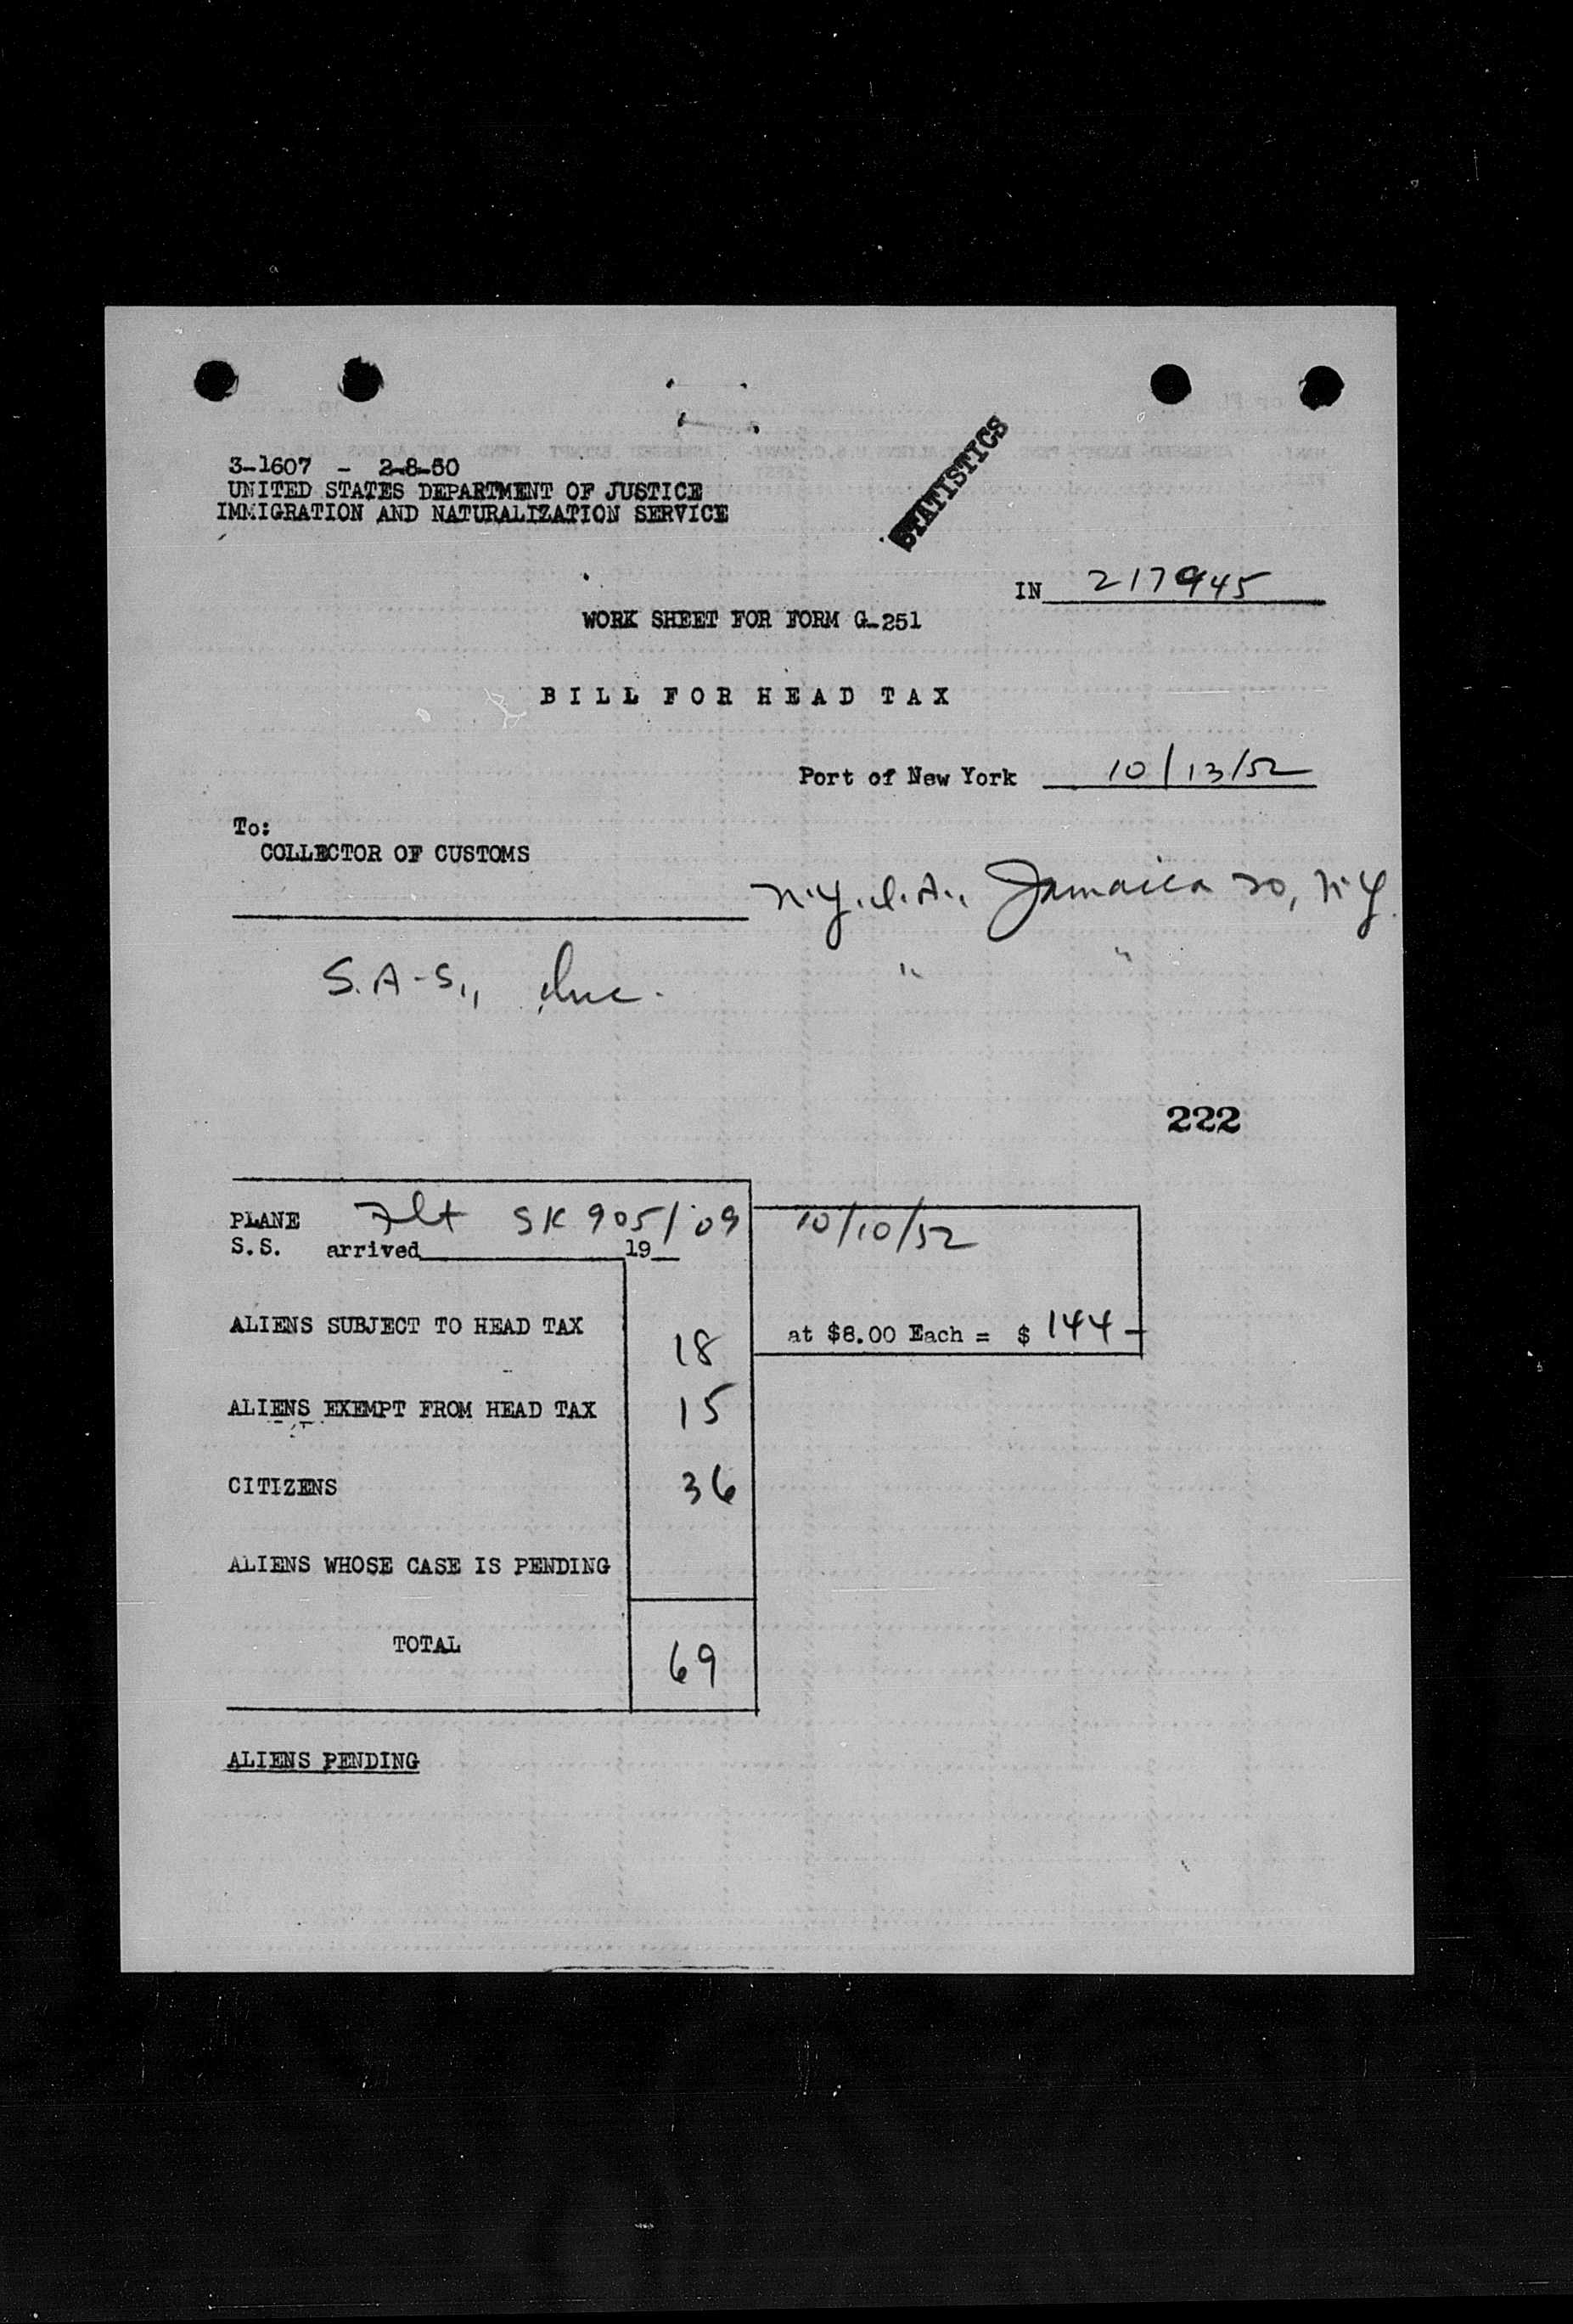 3-1607 - 2-8-50
UNITED STATES DEPARTMENT OF JUSTICE
IMMIGRATION AND NATURALIZATION SERVICE
STATISTICS
IN 217945
WORK SHEET FOR FORM G-251
BILL FOR HEAD TAX
Port of New York 10/13/52
To:
COLLECTOR OF CUSTOMS
N.Y.I.A., Jamaica 30, N.Y.
S.A.S., Inc. " "
222
PLANE Flt SK 905/09 10/10/52
S.S. arrived 19
ALIENS SUBJECT TO HEAD TAX 18 at $8.00 Each = $ 144-
ALIENS EXEMPT FROM HEAD TAX 15
CITIZENS 36
ALIENS WHOSE CASE IS PENDING
TOTAL 69
ALIENS PENDING